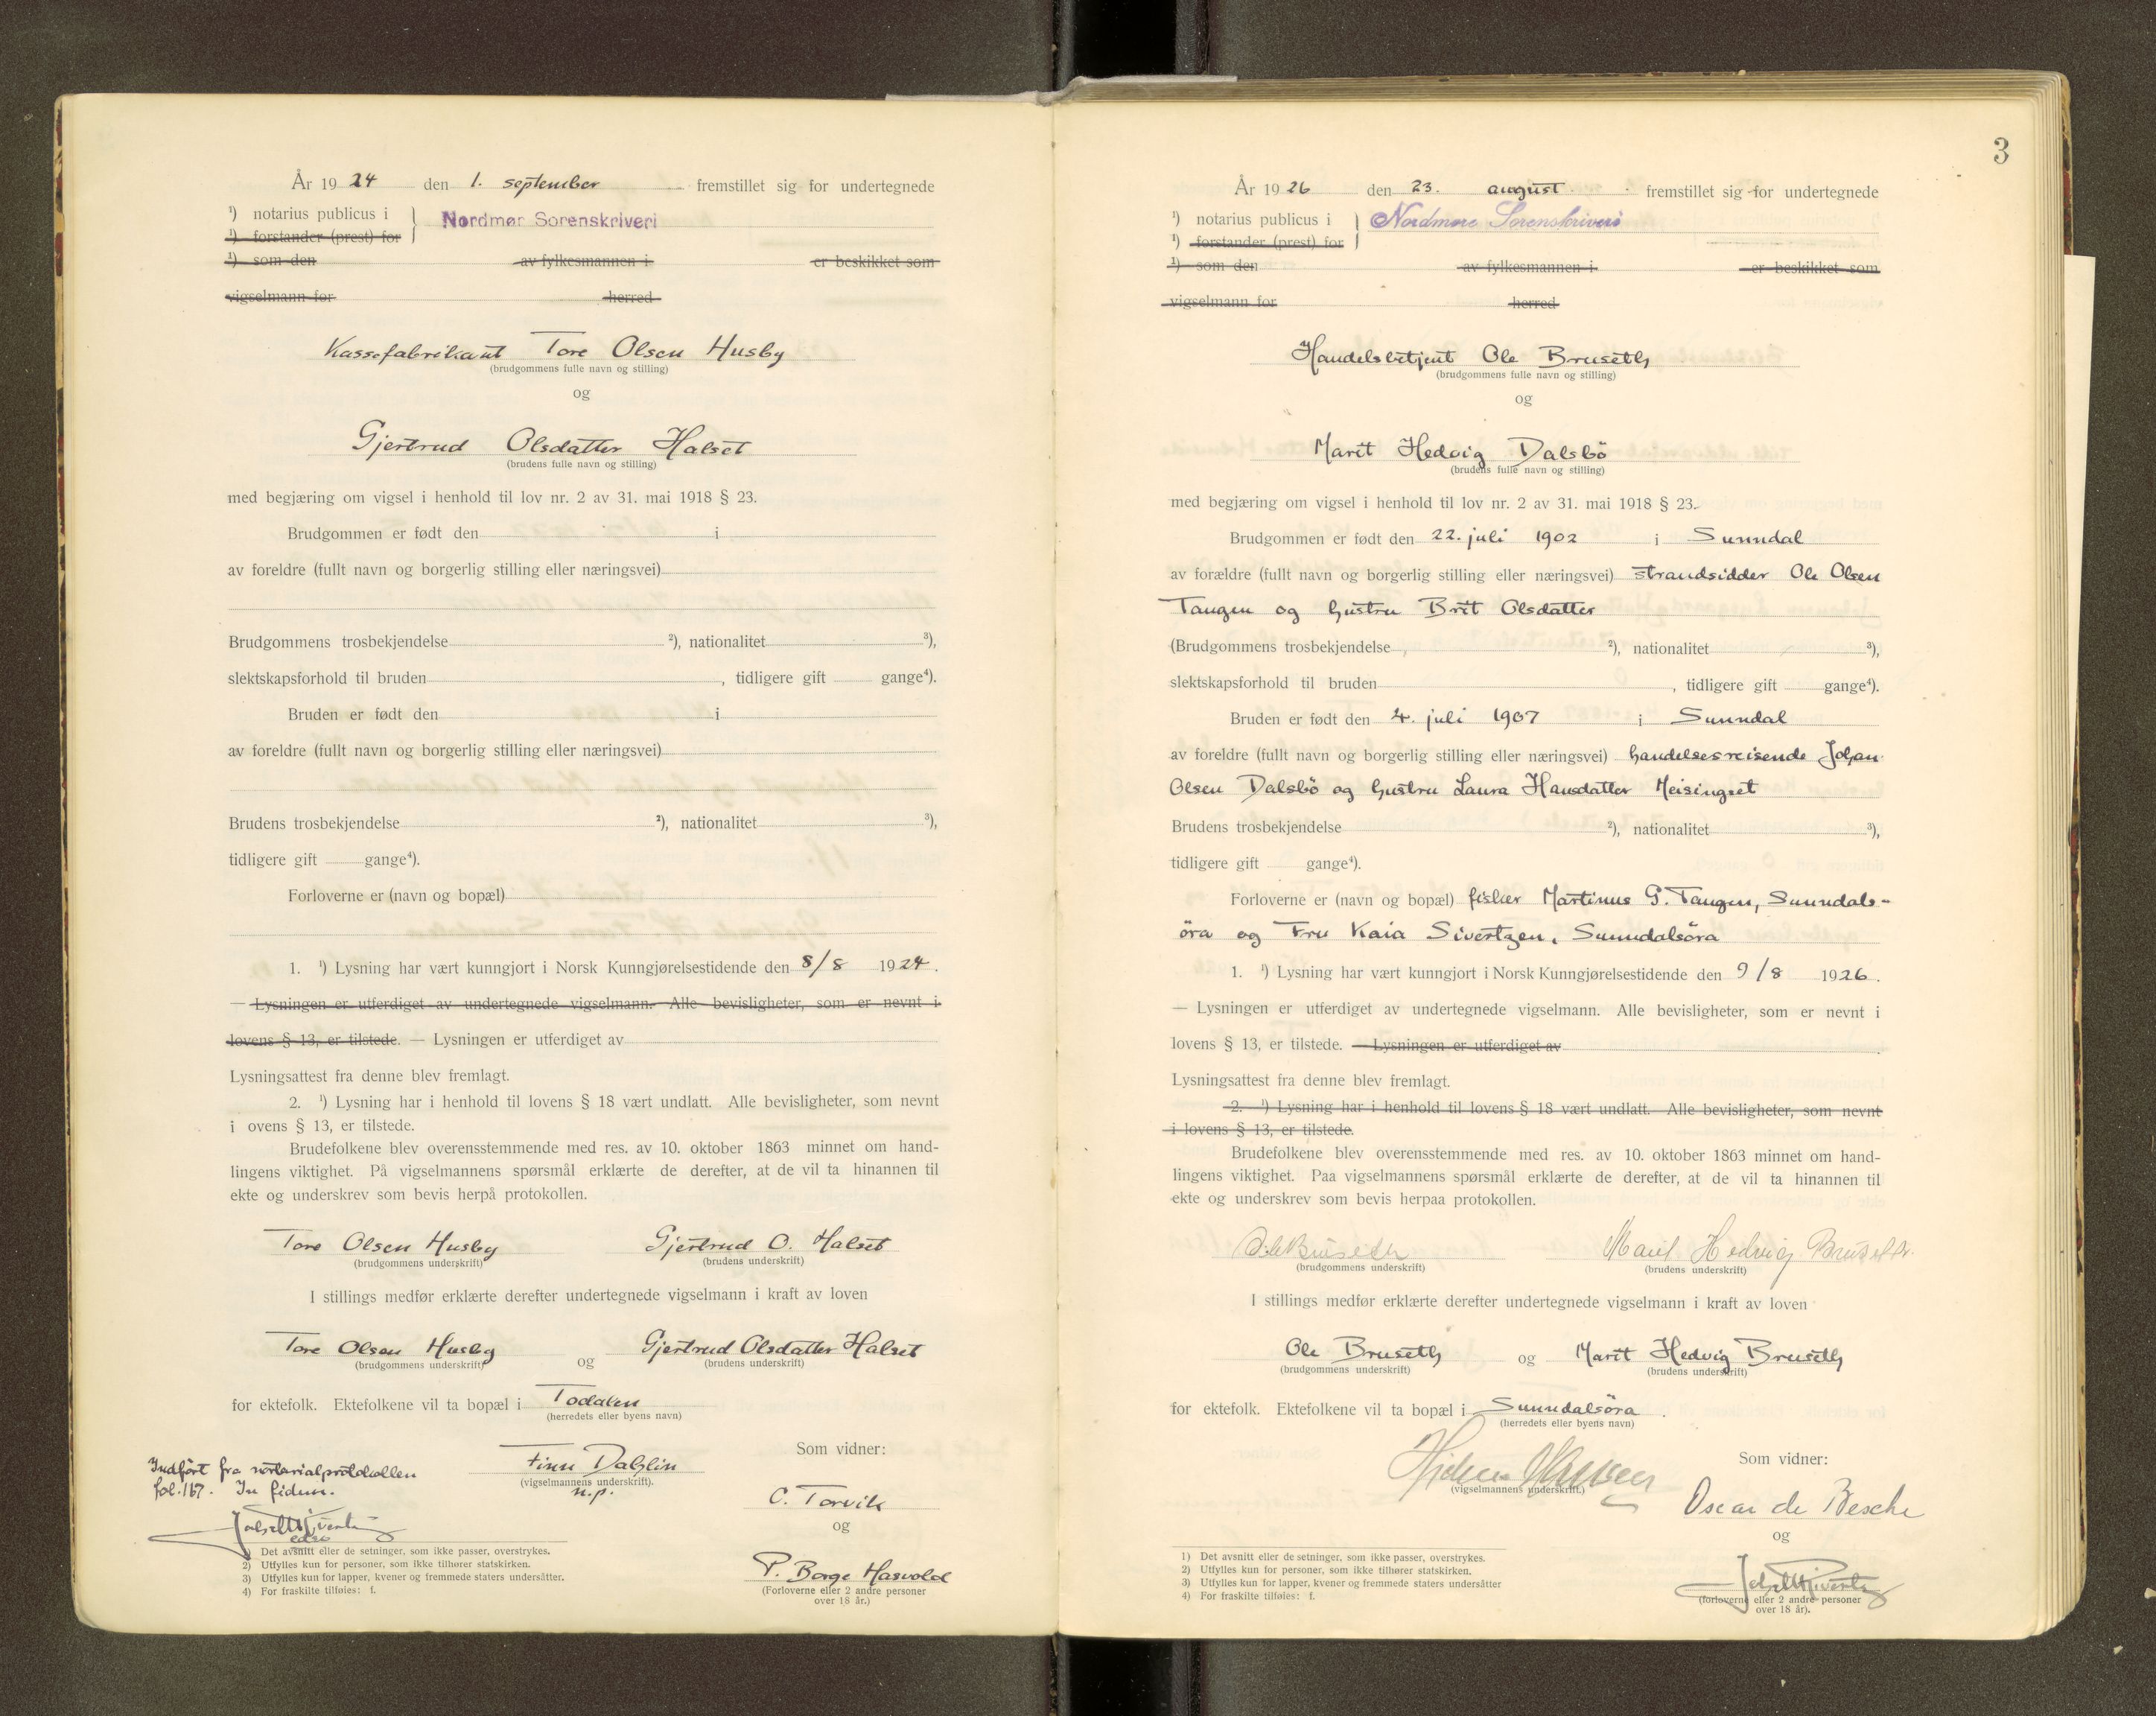 År 1924 den 1. september fremstillet sig for undertegnede
¹) notarius publicus i } Nordmør Sorenskriveri
¹) forstander (prest) for
¹) som den av fylkesmannen i er beskikket som
vigselmann for herred
Kassefabrikant Tore Olsen Husby
(brudgommens fulle navn og stilling)
og
Gjertrud Olsdatter Halset
(brudens fulle navn og stilling)
med begjæring om vigsel i henhold til lov nr. 2 av 31. mai 1918 § 23.
Brudgommen er født den i
av foreldre (fullt navn og borgerlig stilling eller næringsvei)
Brudgommens trosbekjendelse ²), nationalitet ³),
slektskapsforhold til bruden , tidligere gift gange⁴).
Bruden er født den i
av foreldre (fullt navn og borgerlig stilling eller næringsvei)
Brudens trosbekjendelse ²), nationalitet ³),
tidligere gift gange⁴).
Forloverne er (navn og bopæl)
1. ¹) Lysning har vært kunngjort i Norsk Kunngjørelsestidende den 8/8 1924.
— Lysningen er utferdiget av undertegnede vigselmann. Alle bevisligheter, som er nevnt i
lovens § 13, er tilstede. — Lysningen er utferdiget av
Lysningsattest fra denne blev fremlagt.
2. ¹) Lysning har i henhold til lovens § 18 vært undlatt. Alle bevisligheter, som nevnt
i ovens § 13, er tilstede.
Brudefolkene blev overensstemmende med res. av 10. oktober 1863 minnet om hand-
lingens viktighet. På vigselmannens spørsmål erklærte de derefter, at de vil ta hinannen til
ekte og underskrev som bevis herpå protokollen.
Tore Olsen Husby Gjertrud O. Halset
(brudgommens underskrift) (brudens underskrift)
I stillings medfør erklærte derefter undertegnede vigselmann i kraft av loven
Tore Olsen Husby og Gjertrud Olsdatter Halset
(brudgommens underskrift) (brudens underskrift)
for ektefolk. Ektefolkene vil ta bopæl i Todalen
(herredets eller byens navn)
Som vidner:
Indført fra notarialprotokollen
fol. 167. In fidem.
Finn Dahlin
(vigselmannens underskrift).
n.p.
C. Torvik
og
P. Borge Hasvold
(Forloverne eller 2 andre personer
over 18 år.)
1) Det avsnitt eller de setninger, som ikke passer, overstrykes.
2) Utfylles kun for personer, som ikke tilhører statskirken.
3) Utfylles kun for lapper, kvener og fremmede staters undersåtter.
4) For fraskilte tilføies: f.
3
År 1926 den 23. august fremstillet sig for undertegnede
¹) notarius publicus i } Nordmøre Sorenskriveri
¹) forstander (prest) for
¹) som den av fylkesmannen i er beskikket som
vigselmann for herred
Handelsbetjent Ole Bruseth
(brudgommens fulle navn og stilling)
og
Marit Hedvig Dalsbö
(brudens fulle navn og stilling)
med begjæring om vigsel i henhold til lov nr. 2 av 31. mai 1918 § 23.
Brudgommen er født den 22. juli 1902 i Sunndal
av forældre (fullt navn og borgerlig stilling eller næringsvei) strandsidder Ole Olsen
Tangen og hustru Brit Olsdatter
(Brudgommens trosbekjendelse ²), nationalitet ³),
slektskapsforhold til bruden , tidligere gift gange⁴).
Bruden er født den 4. juli 1907 i Sunndal
av foreldre (fullt navn og borgerlig stilling eller næringsvei) handelsreisende Johan
Olsen Dalsbö og hustru Laura Hansdatter Meisingset
Brudens trosbekjendelse ²), nationalitet ³),
tidligere gift gange⁴).
Forloverne er (navn og bopæl) fisker Martinus G. Tangen, Sunndals-
öra og Fru Kaia Sivertzen, Sunndalsöra
1. ¹) Lysning har vært kunngjort i Norsk Kunngjørelsestidende den 9/8 1926.
— Lysningen er utferdiget av undertegnede vigselmann. Alle bevisligheter, som er nevnt i
lovens § 13, er tilstede. — Lysningen er utferdiget av .
Lysningsattest fra denne blev fremlagt.
2. ¹) Lysning har i henhold til lovens § 18 vært undlatt. Alle bevisligheter, som nevnt
i lovens § 13, er tilstede.
Brudefolkene blev overensstemmende med res. av 10. oktober 1863 minnet om hand-
lingens viktighet. Paa vigselmannens spørsmål erklærte de derefter, at de vil ta hinannen til
ekte og underskrev som bevis herpaa protokollen.
Ole Bruseth Marit Hedvig Bruseth.
(brudgommens underskrift) (brudens underskrift)
I stillings medfør erklærte derefter undertegnede vigselmann i kraft av loven
Ole Bruseth og Marit Hedvig Bruseth
(brudgommens underskrift) (brudens underskrift)
for ektefolk. Ektefolkene vil ta bopæl i Sunndalsöra.
(herredets eller byens navn)
Som vidner:
(vigselmannens underskrift.)
Oscar de Besche
og
(forloverne eller 2 andre personer
over 18 år).
1) Det avsnitt eller de setninger, som ikke passer, overstrykes.
2) Utfylles kun for personer, som ikke tilhører statskirken.
3) Utfylles kun for lapper, kvener og fremmede staters undersåtter
4) For fraskilte tilføies: f.